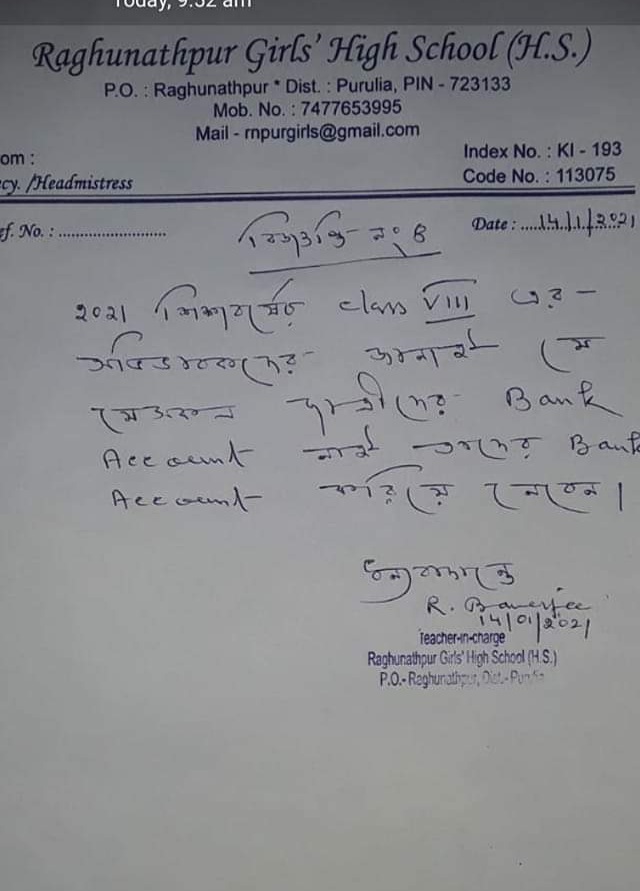 Today, 9:52 am
Raghunathpur Girls' High School (H.S.)
P.O. : Raghunathpur * Dist. : Purulia, PIN - 723133
Mob. No. : 7477653995
Mail - rnpurgirls@gmail.com
om :
cy. /Headmistress
Index No. : KI - 193
Code No. : 113075
ef. No. : ..........................
Date : .....14/1/2021
বিজ্ঞপ্তি নং 8
২০২১ শিক্ষাবর্ষের class VIII এর -
অভিভাবকদের জানাই যে
যেসকল ছাত্রীদের Bank
Account নাই তাদের Bank
Account করিয়ে নেবেন।
ধন্যবাদান্তে
R. Banerjee
14/01/2021
Teacher-in-charge
Raghunathpur Girls' High School (H.S.)
P.O.- Raghunathpur, Dist.- Purulia